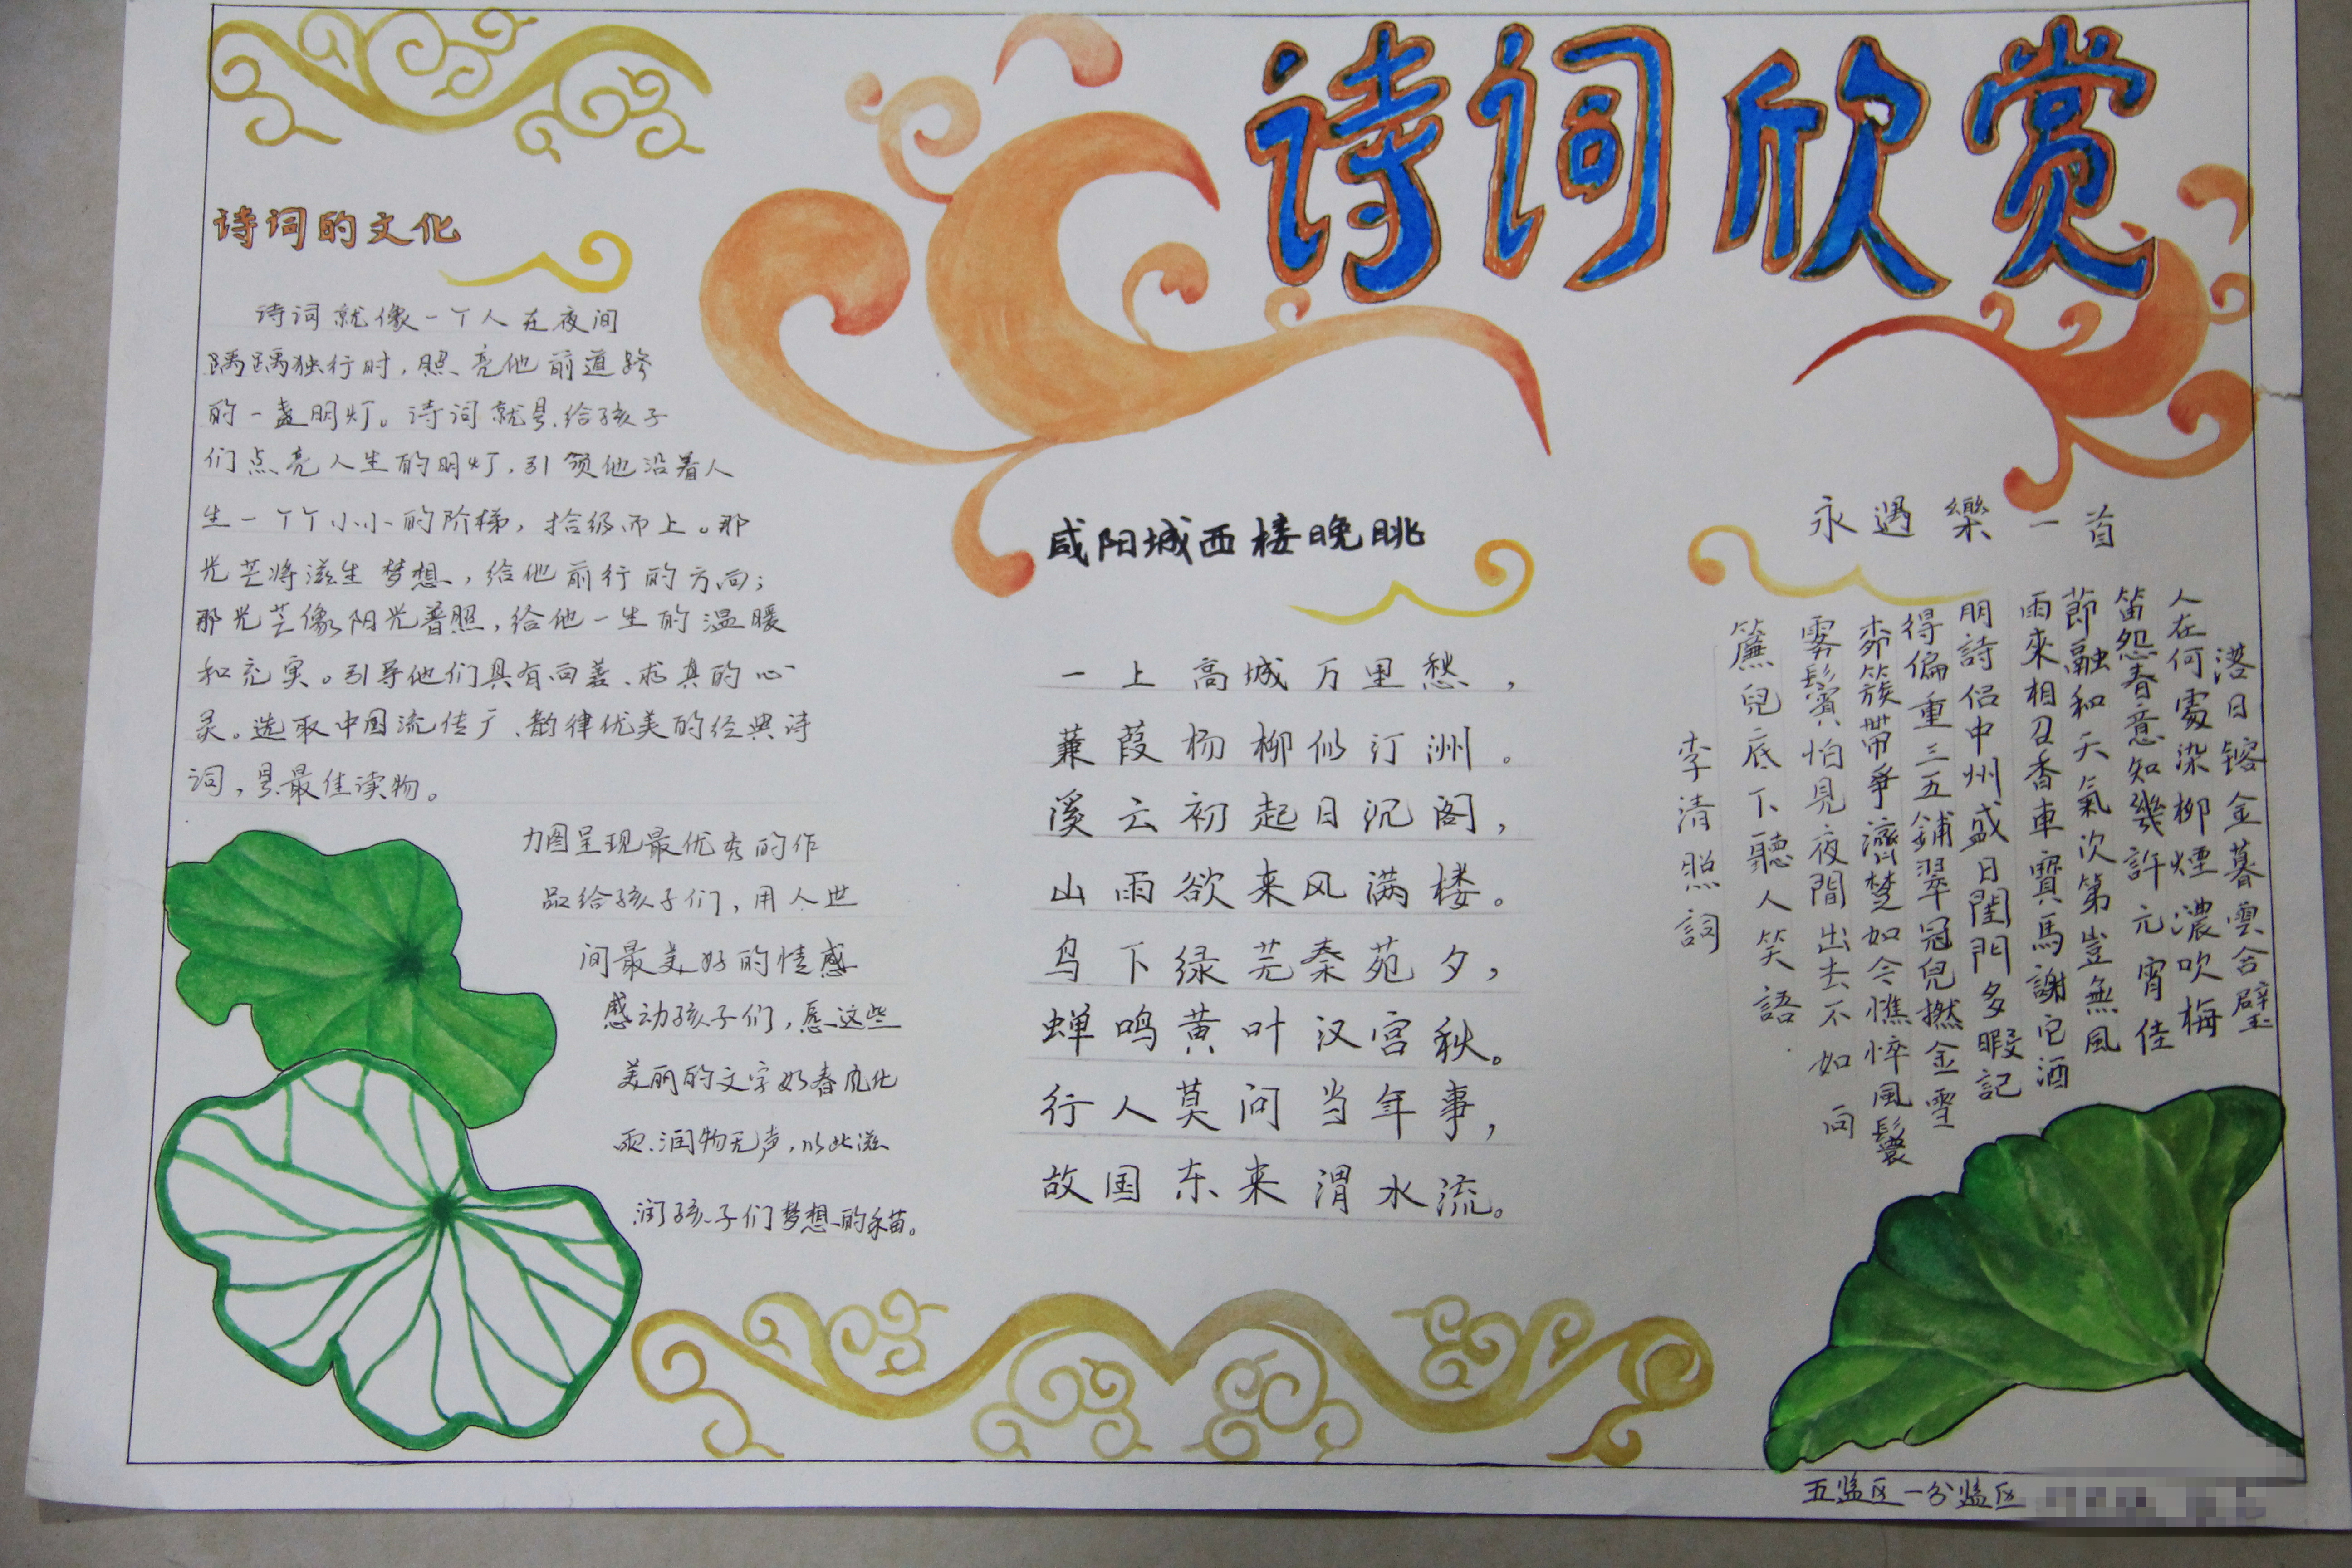 诗词欣赏
诗词的文化
诗词就像一个人在夜间
踽踽独行时，照亮他前道路
的一盏明灯。诗词就是给孩子
们点亮人生的明灯，引领他沿着人
生一个个小小的阶梯，拾级而上。那
光芒将滋生梦想，给他前行的方向；
那光芒像阳光普照，给他一生的温暖
和充实。引导他们具有向善、求真的心
灵。选取中国流传广、韵律优美的经典诗
词，是最佳读物。
力图呈现最优秀的作
品给孩子们，用人世
间最美好的情感
感动孩子们，愿这些
美丽的文字如春风化
雨、润物无声，以此滋
润孩子们梦想的禾苗。
咸阳城西楼晚眺
一上高城万里愁，
蒹葭杨柳似汀洲。
溪云初起日沉阁，
山雨欲来风满楼。
鸟下绿芜秦苑夕，
蝉鸣黄叶汉宫秋。
行人莫问当年事，
故国东来渭水流。
永遇樂一首
落日镕金暮雲合璧
人在何處染柳煙濃吹梅
笛怨春意知幾許元宵佳
節融和天氣次第豈無風
雨來相召香車寶馬謝它酒
朋詩侶中州盛日閨門多暇記
得偏重三五鋪翠冠兒撚金雪
柳簇帶爭濟楚如今憔悴風鬟
霧鬢怕見夜間出去不如向
簾兒底下聽人笑語
李清照詞
五监区一分监区